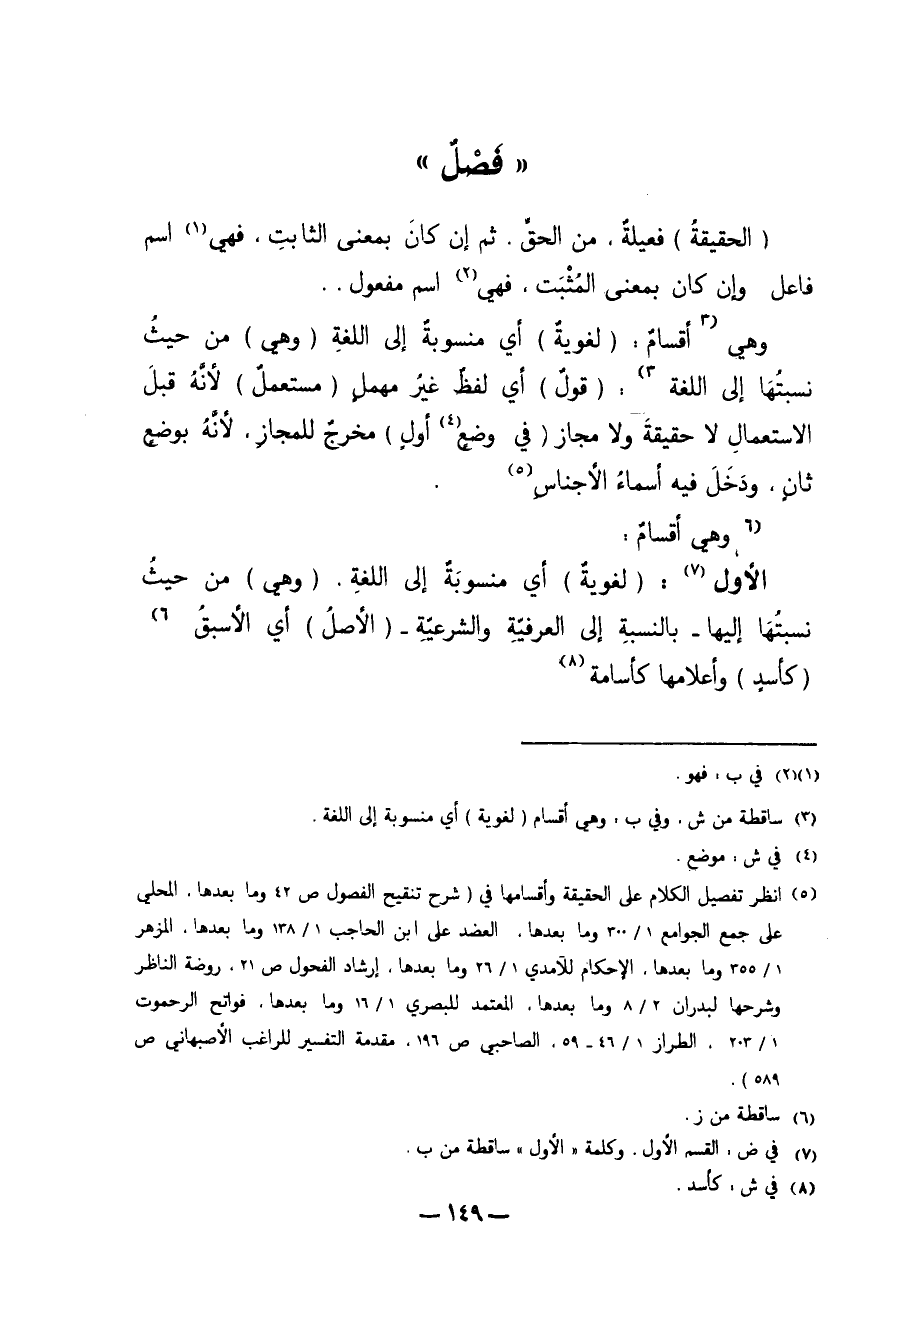 « فَصْلٌ »
( الحقيقةُ ) فعيلةٌ ، من الحقِّ . ثم إن كانَ بمعنى الثابتِ ، فهي(١) اسم
فاعل وإن كان بمعنى المُثْبَت ، فهي(٢) اسم مفعول . .
وهي (٣ أقسامٌ : ( لغويةٌ ) أي منسوبةٌ إلى اللغةِ ( وهي ) من حيثُ
نسبتُهَا إلى اللغة ٣) : ( قولٌ ) أي لفظٌ غيرُ مهملٍ ( مستعملٌ ) لأنَّهُ قبلَ
الاستعمالِ لا حقيقةَ ولا مجاز ( في وضعٍ(٤) أولٍ ) مخرجٌ للمجازِ ، لأنَّهُ بوضعٍ
ثانٍ ، ودَخَلَ فيه أسماءُ الأجناسِ(٥) .
(٦ وهي أقسامٌ :
الأول (٧) : ( لغويةٌ ) أي منسوبَةٌ إلى اللغةِ . ( وهي ) من حيثُ
نسبتُهَا إليها - بالنسبةِ إلى العرفيّةِ والشرعيّةِ - ( الأصلُ ) أي الأسبقُ ٦)
( كأسدٍ ) وأعلامها كأسامة(٨)
(١)(٢) في ب : فهو .
(٣) ساقطة من ش . وفي ب : وهي أقسام ( لغوية ) أي منسوبة إلى اللغة .
(٤) في ش : موضع .
(٥) انظر تفصيل الكلام على الحقيقة وأقسامها في ( شرح تنقيح الفصول ص ٤٢ وما بعدها ، المحلي
على جمع الجوامع ١ / ٣٠٠ وما بعدها ، العضد على ابن الحاجب ١ / ١٣٨ وما بعدها ، المزهر
١ / ٣٥٥ وما بعدها ، الإحكام للآمدي ١ / ٢٦ وما بعدها ، إرشاد الفحول ص ٢١ ، روضة الناظر
وشرحها لبدران ٢ / ٨ وما بعدها ، المعتمد للبصري ١ / ١٦ وما بعدها ، فواتح الرحموت
١ / ٢٠٣ ، الطراز ١ / ٤٦ - ٥٩ ، الصاحبي ص ١٩٦ ، مقدمة التفسير للراغب الأصبهاني ص
٥٨٩ ) .
(٦) ساقطة من ز .
(٧) في ض : القسم الأول . وكلمة « الأول » ساقطة من ب .
(٨) في ش : كأسد .
— ١٤٩ —